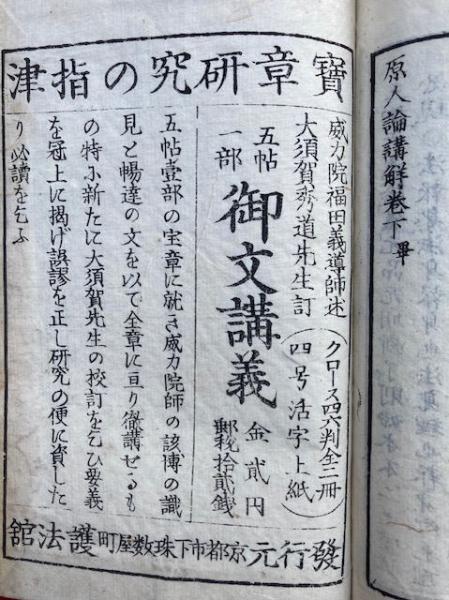 原人論講解卷下畢
寶章研究の指津
威力院福田義導師述
大須賀秀道先生訂
（クロース四六判全二冊
四号活字上紙）
五帖
一部
御文講義
金貳円
郵税拾貳銭
五帖壹部の宝章に就き威力院師の該博の識
見と暢達の文を以て全章に亘り徹講せるも
の特に新たに大須賀先生の校訂を乞ひ要義
を冠上に掲げ誤謬を正し研究の便に資した
り必讀を乞ふ
發行元 京都市下珠数屋町 護法舘